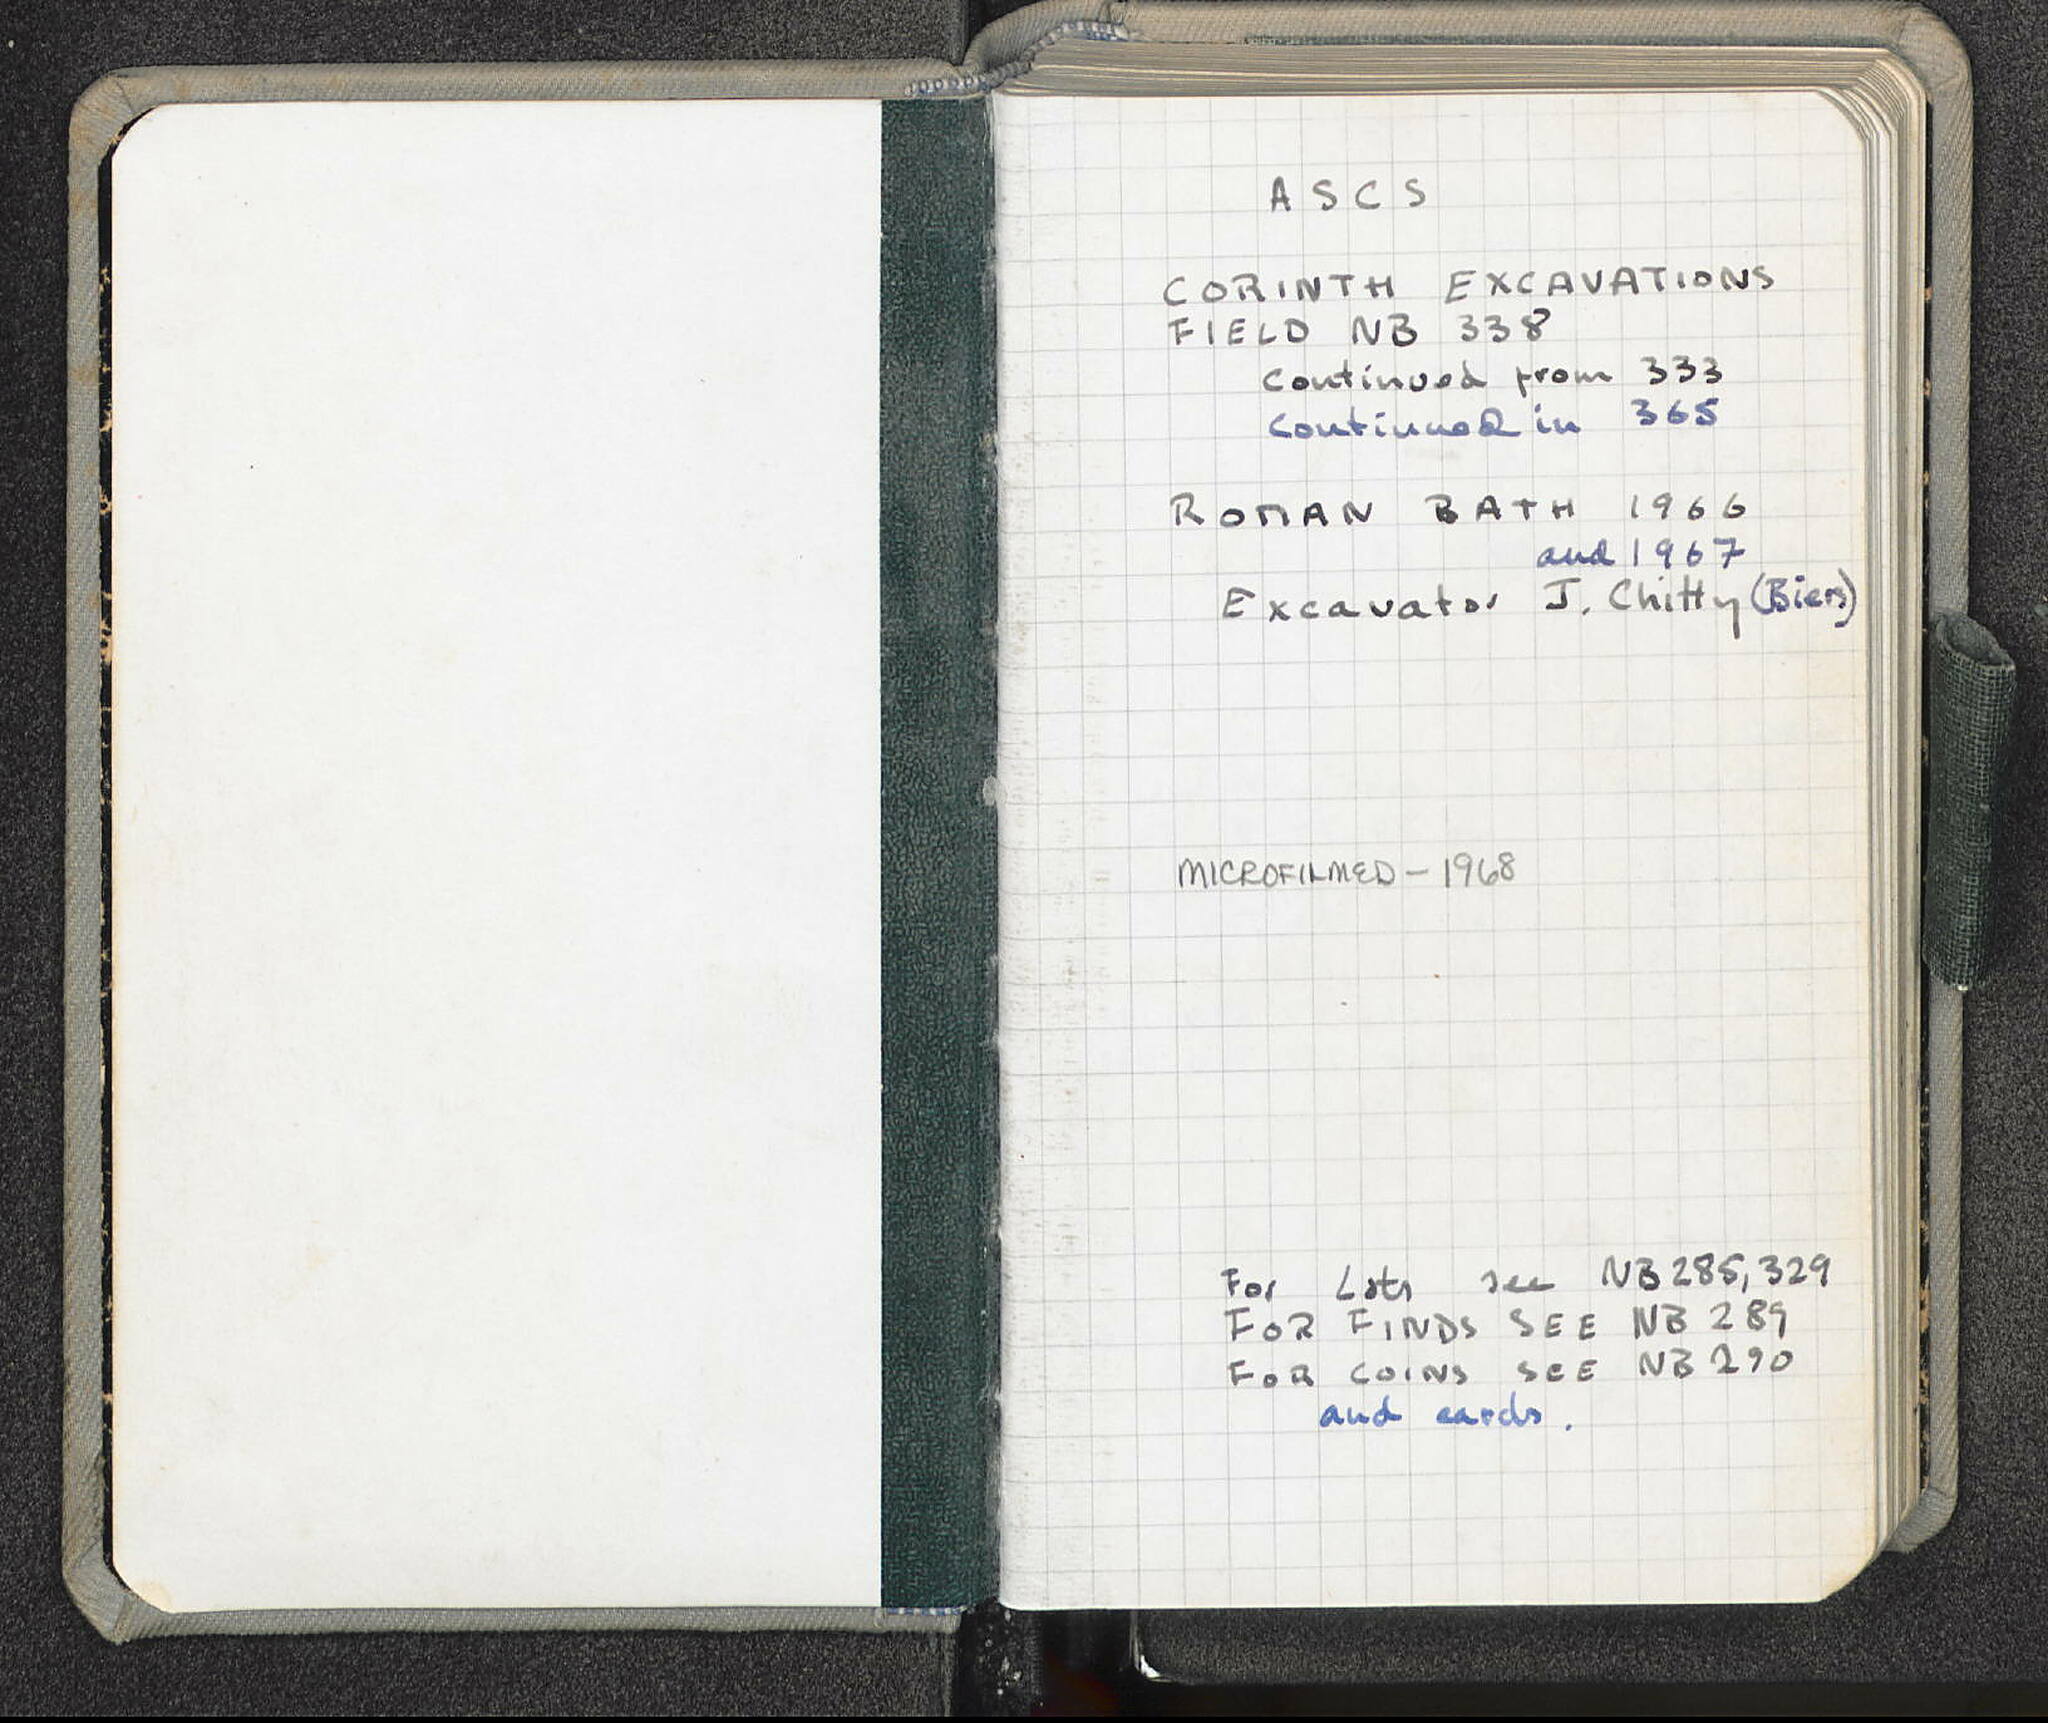 A S C S
CORINTH EXCAVATIONS
FIELD NB 338
continued from 333
continued in 365
ROMAN BATH 1966
and 1967
Excavator J. Chitty (Biers)
MICROFILMED - 1968
For Lots see NB 285, 329
FOR FINDS SEE NB 289
FOR COINS SEE NB 290
and cards.